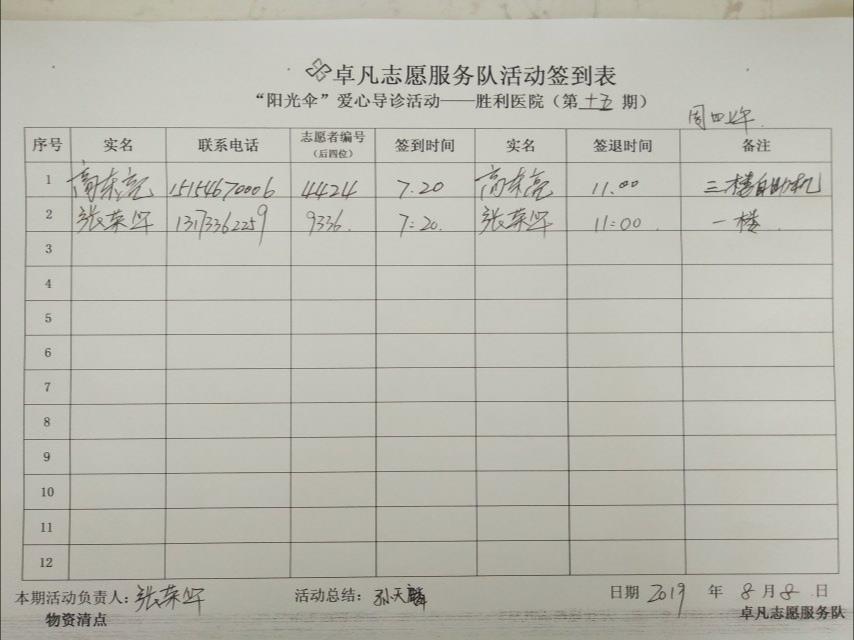 卓凡志愿服务队活动签到表
“阳光伞”爱心导诊活动——胜利医院（第十五期）
周四上午.
序号 实名 联系电话 志愿者编号（后四位） 签到时间 实名 签退时间 备注
1 高东亮 15154670006 4424 7.20 高东亮 11.00 三楼自助机
2 张荣华 13173362259 9336. 7:20. 张荣华 11:00 一楼.
3
4
5
6
7
8
9
10
11
12
本期活动负责人：张荣华 活动总结：孙天麟 日期 2019 年 8月8.日
物资清点 卓凡志愿服务队